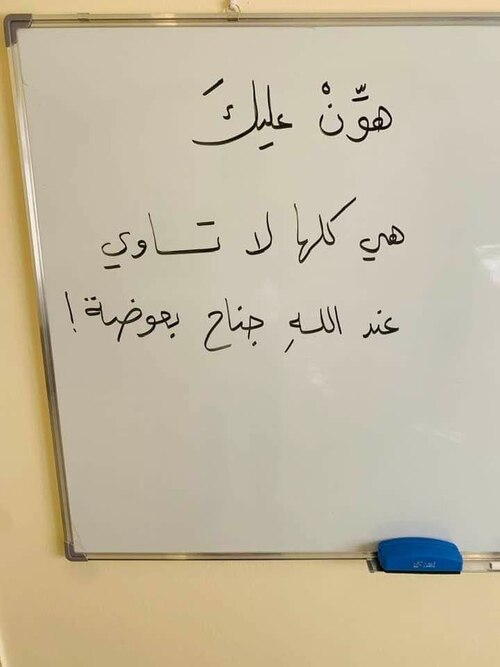 هوِّنْ عليكَ
هي كلها لا تساوي
عند اللهِ جناح بعوضة!